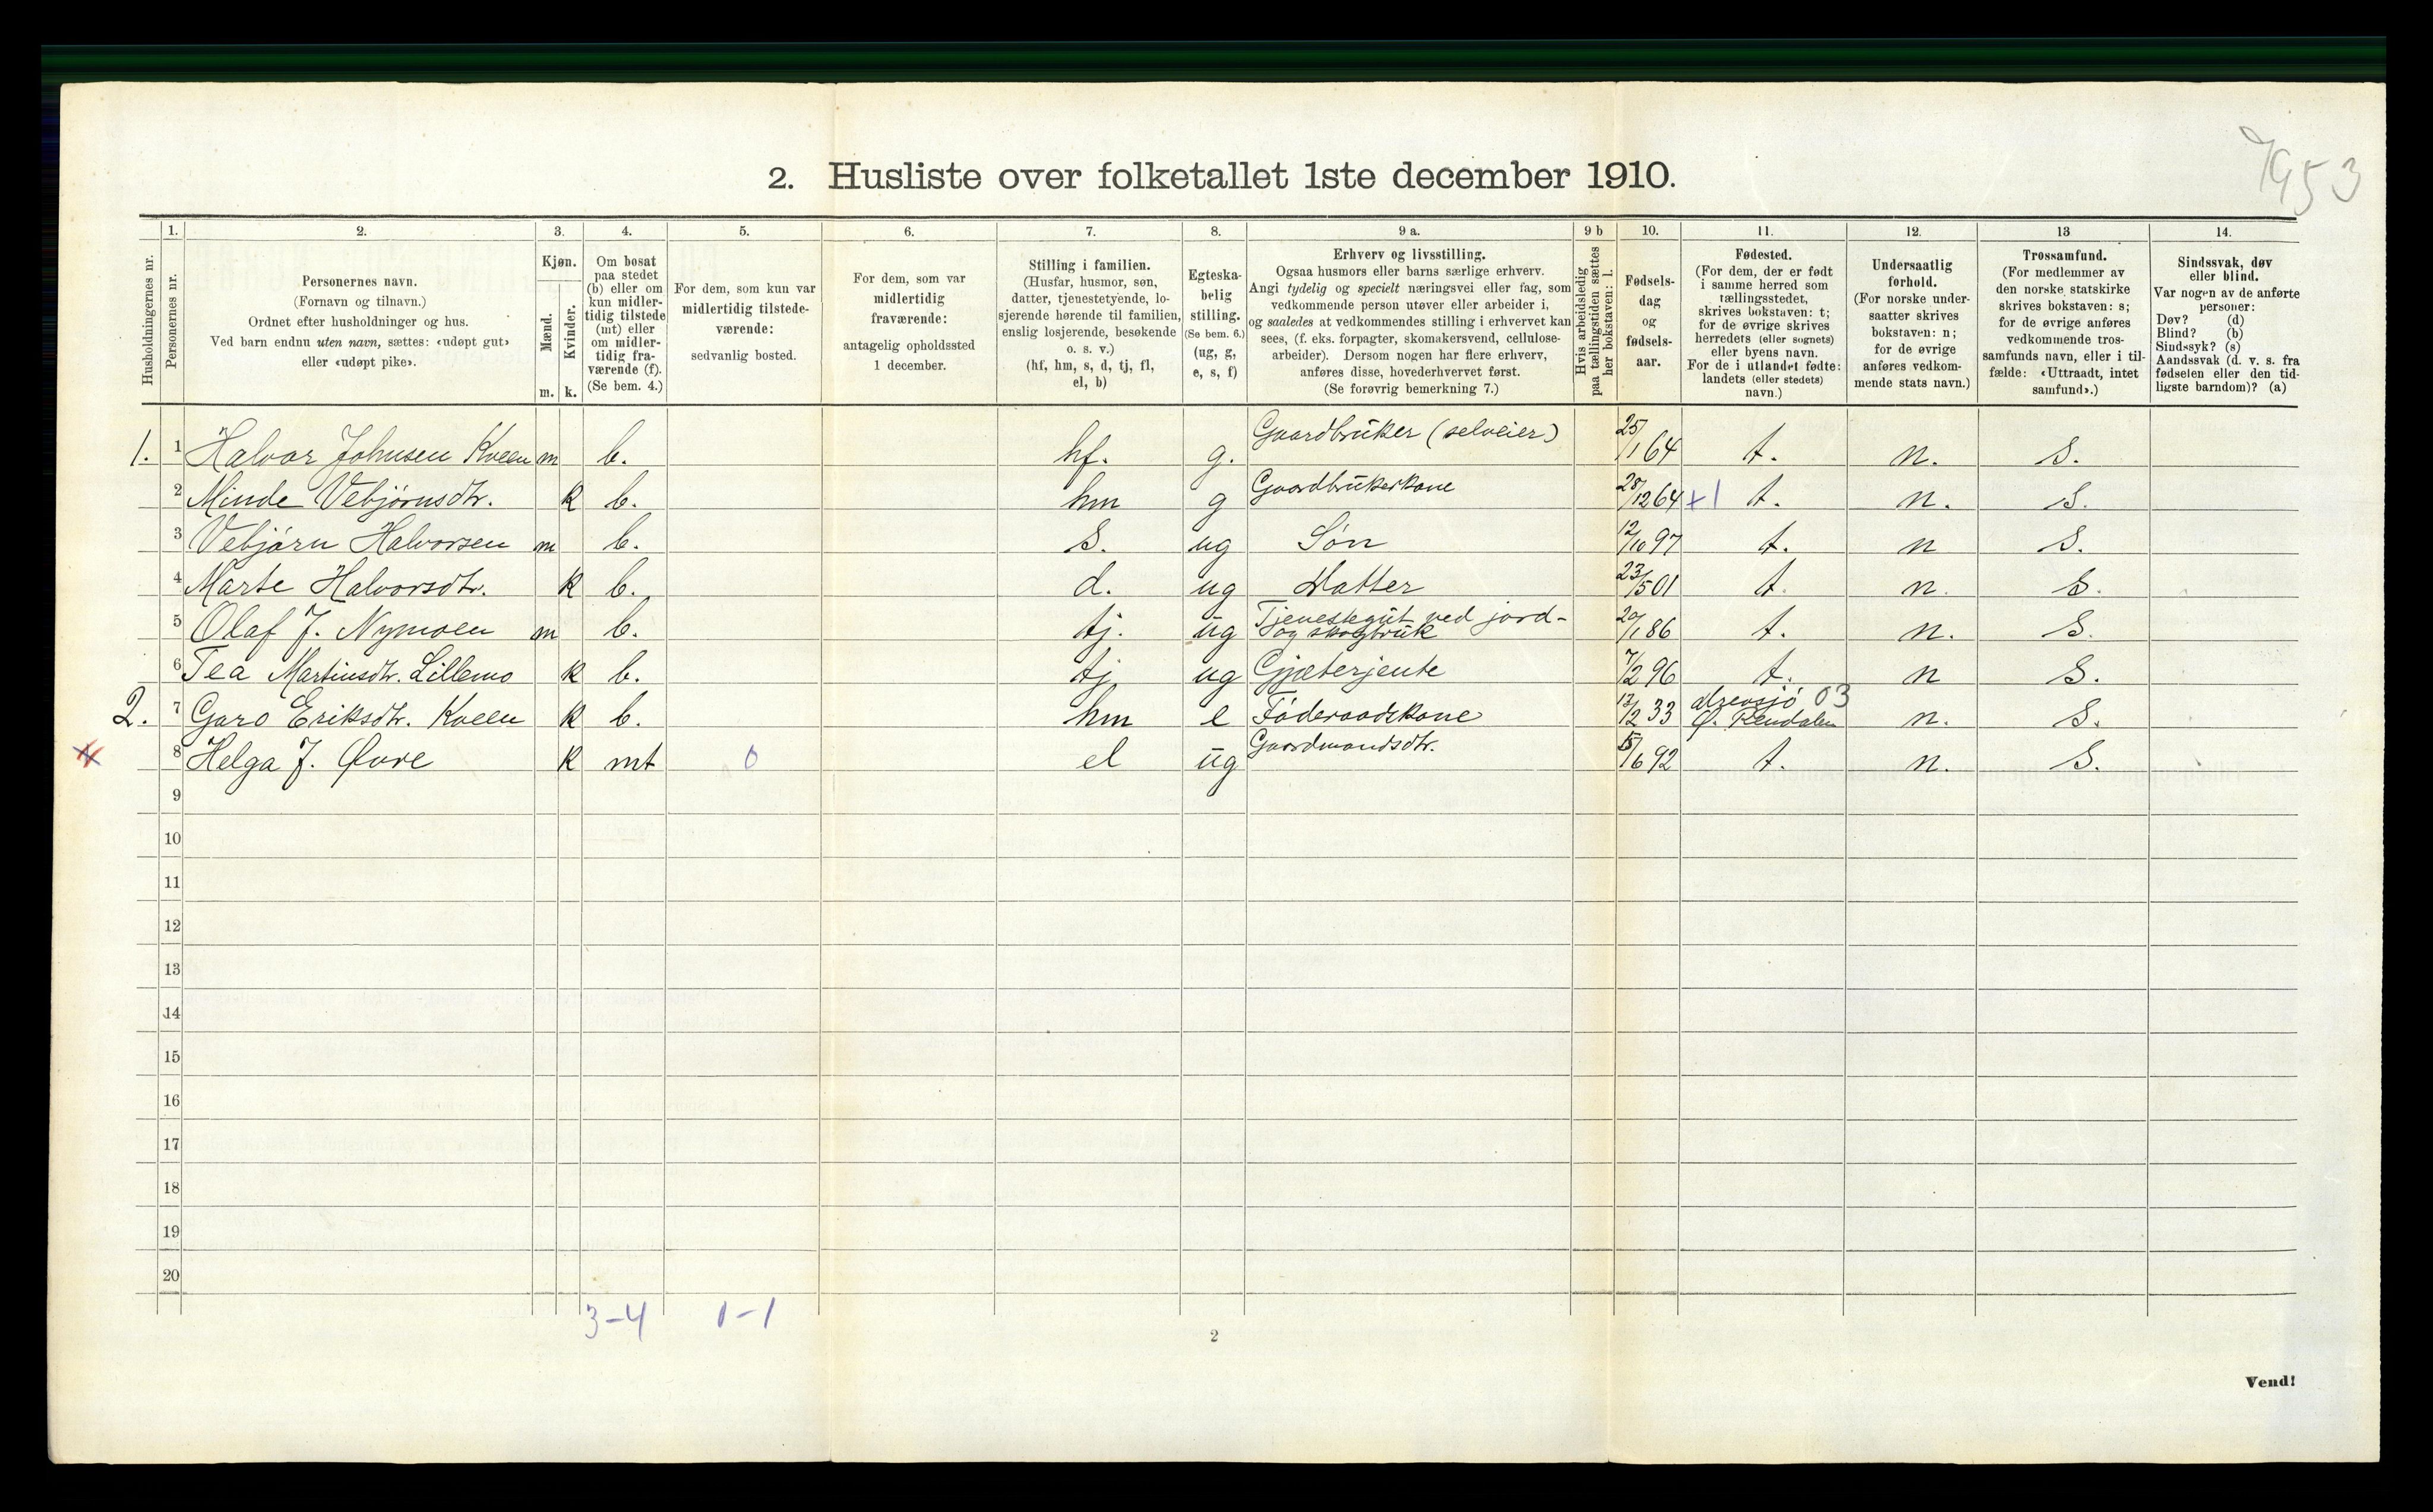 7953
2. Husliste over folketallet 1ste december 1910.
Husholdningernes nr.
1. Personernes nr.
2. Personernes navn.
(Fornavn og tilnavn.)
Ordnet efter husholdninger og hus.
Ved barn endnu uten navn, sættes: «udøpt gut»
eller «udøpt pike».
3. Kjøn.
Mænd. m.
Kvinder. k.
4. Om bosat
paa stedet
(b) eller om
kun midler-
tidig tilstede
(mt) eller
om midler-
tidig fra-
værende (f).
(Se bem. 4.)
5. For dem, som kun var
midlertidig tilstede-
værende:
sedvanlig bosted.
6. For dem, som var
midlertidig
fraværende:
antagelig opholdssted
1 december.
7. Stilling i familien.
(Husfar, husmor, søn,
datter, tjenestetyende, lo-
sjerende hørende til familien,
enslig losjerende, besøkende
o. s. v.)
(hf, hm, s, d, tj, fl,
el, b)
8. Egteska-
belig
stilling.
(Se bem. 6.)
(ug, g,
e, s, f)
9 a. Erhverv og livsstilling.
Ogsaa husmors eller barns særlige erhverv.
Angi tydelig og specielt næringsvei eller fag, som
vedkommende person utøver eller arbeider i,
og saaledes at vedkommendes stilling i erhvervet kan
sees, (f. eks. forpagter, skomakersvend, cellulose-
arbeider). Dersom nogen har flere erhverv,
anføres disse, hovederhvervet først.
(Se forøvrig bemerkning 7.)
9 b Hvis arbeidsledig
paa tællingstiden sættes
her bokstaven: l.
10. Fødsels-
dag
og
fødsels-
aar.
11. Fødested.
(For dem, der er født
i samme herred som
tællingsstedet,
skrives bokstaven: t;
for de øvrige skrives
herredets (eller sognets)
eller byens navn.
For de i utlandet fødte:
landets (eller stedets)
navn.)
12. Undersaatlig
forhold.
(For norske under-
saatter skrives
bokstaven: n;
for de øvrige
anføres vedkom-
mende stats navn.)
13 Trossamfund.
(For medlemmer av
den norske statskirke
skrives bokstaven: s;
for de øvrige anføres
vedkommende tros-
samfunds navn, eller i til-
fælde: «Uttraadt, intet
samfund».)
14. Sindssvak, døv
eller blind.
Var nogen av de anførte
personer:
Døv? (d)
Blind? (b)
Sindssyk? (s)
Aandssvak (d. v. s. fra
fødselen eller den tid-
ligste barndom)? (a)
1. 1 Halvor Johnsen Kveen m b. hf. g. Gaardbruker (selveier) 25/1 64 t. n. s.
2 Minde Vebjørnsdtr. k b. hm g Gaardbrukerkone 28/12 64 +1 t. n. s.
3 Vebjørn Halvorsen m b. s. ug Søn 12/10 97 t. n s.
4 Marte Halvorsdtr. k b. d. ug Datter 23/5 01 t. n. s.
5 Olaf J. Nymoen m b. tj. ug Tjenestegut ved jord-
og skogbruk 20/1 86 t. n. s.
6 Tea Martinsdtr. Lillemo k b. tj ug Gjæterjente 7/2 96 t. n s.
2. 7 Garo Eriksdtr. Kveen k b. hm e Føderaadskone 13/12 33 Drevsjø 03
Ø. Rendalen n. s.
8 Helga J. Øvre k mt 0 el ug Gaardmandsdtr. 15/6 92 t. n. s.
9
10
11
12
13
14
15
16
17
18
19
20
3-4 1-1
2
Vend!